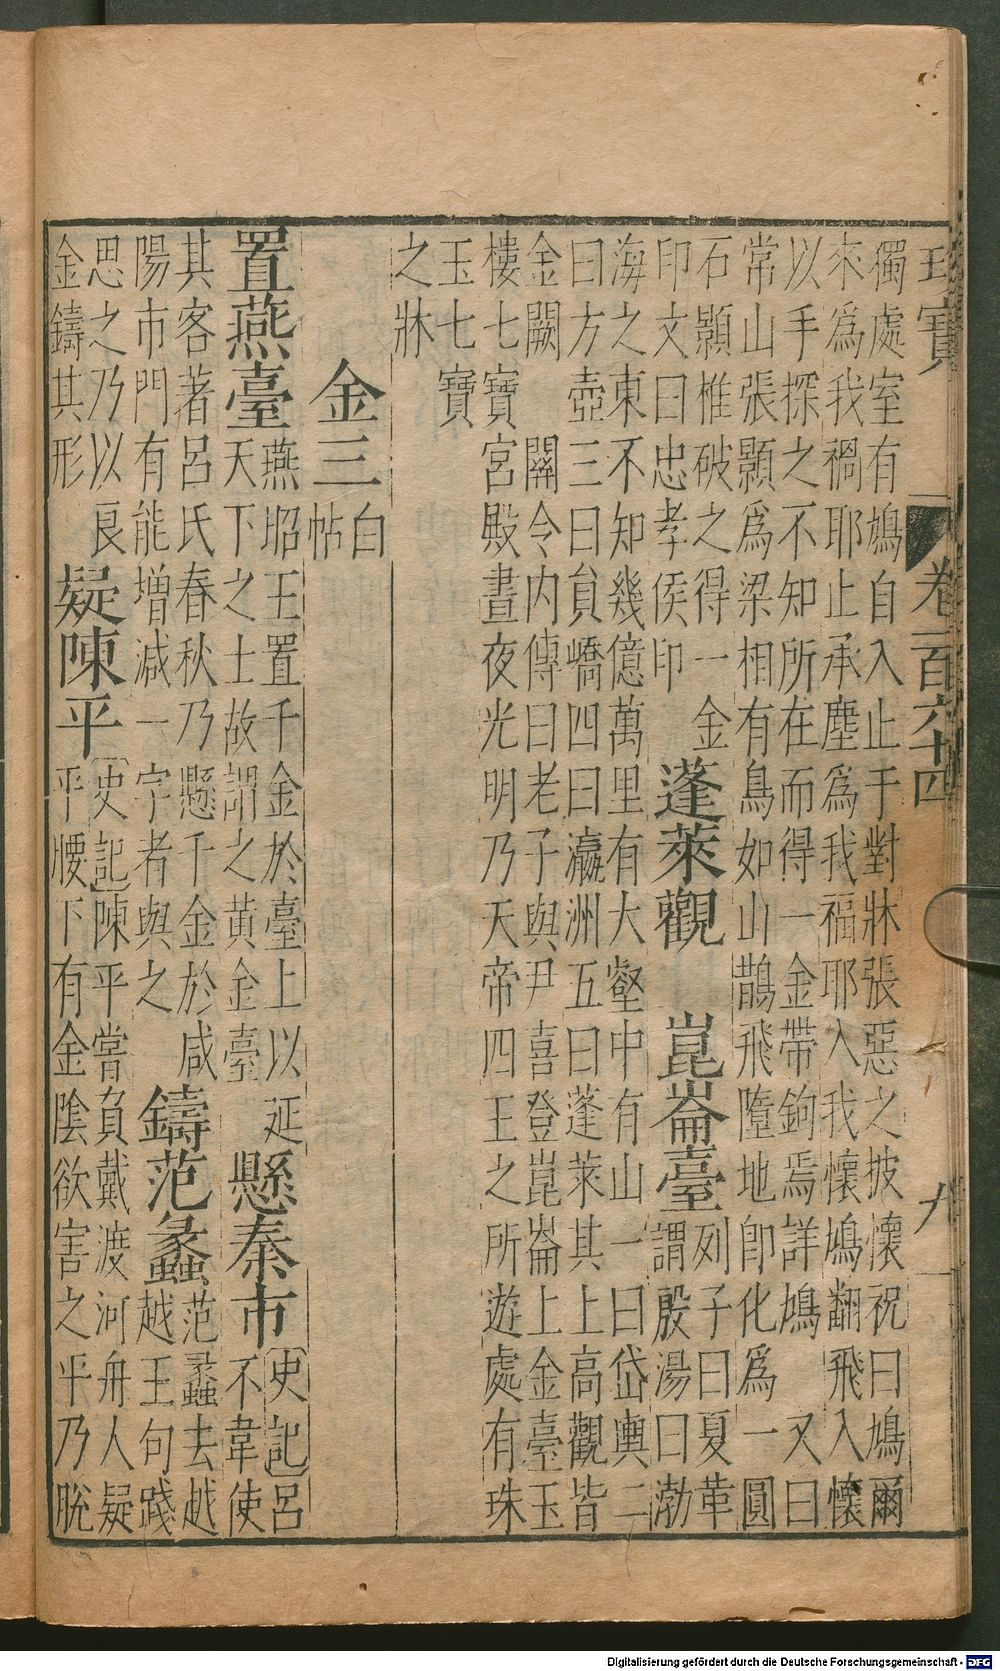 珍寶 卷三百六十四 九
獨處室有鳩自入止于對牀張惡之披懷祝曰鳩爾
來爲我禍耶止承塵爲我福耶入我懷鳩翻飛入懷
以手探之不知所在而得一金帶鉤焉詳鳩 又曰
常山張顥爲梁相有鳥如山鵲飛墮地卽化爲一圓
石顥椎破之得一金
印文曰忠孝侯印
蓬萊觀 崑崙臺
列子曰夏革
謂殷湯曰渤
海之東不知幾億萬里有大壑中有山一曰岱輿二
曰方壺三曰貟嶠四曰瀛洲五曰蓬萊其上高觀皆
金闕 關令内傳曰老子與尹喜登崑崙上金臺玉
樓七寶宮殿晝夜光明乃天帝四王之所遊處有珠
玉七寶
之牀
金三
白
帖
置燕臺
燕昭王置千金於臺上以延
天下之士故謂之黄金臺
懸秦市
[史記]呂
不韋使
其客著呂氏春秋乃懸千金於咸
陽市門有能增減一字者與之
鑄范蠡
范蠡去越
越王句踐
思之乃以良
金鑄其形
疑陳平
[史記]陳平嘗負戴渡河舟人疑
平腰下有金陰欲害之平乃脫
Digitalisierung gefördert durch die Deutsche Forschungsgemeinschaft - DFG